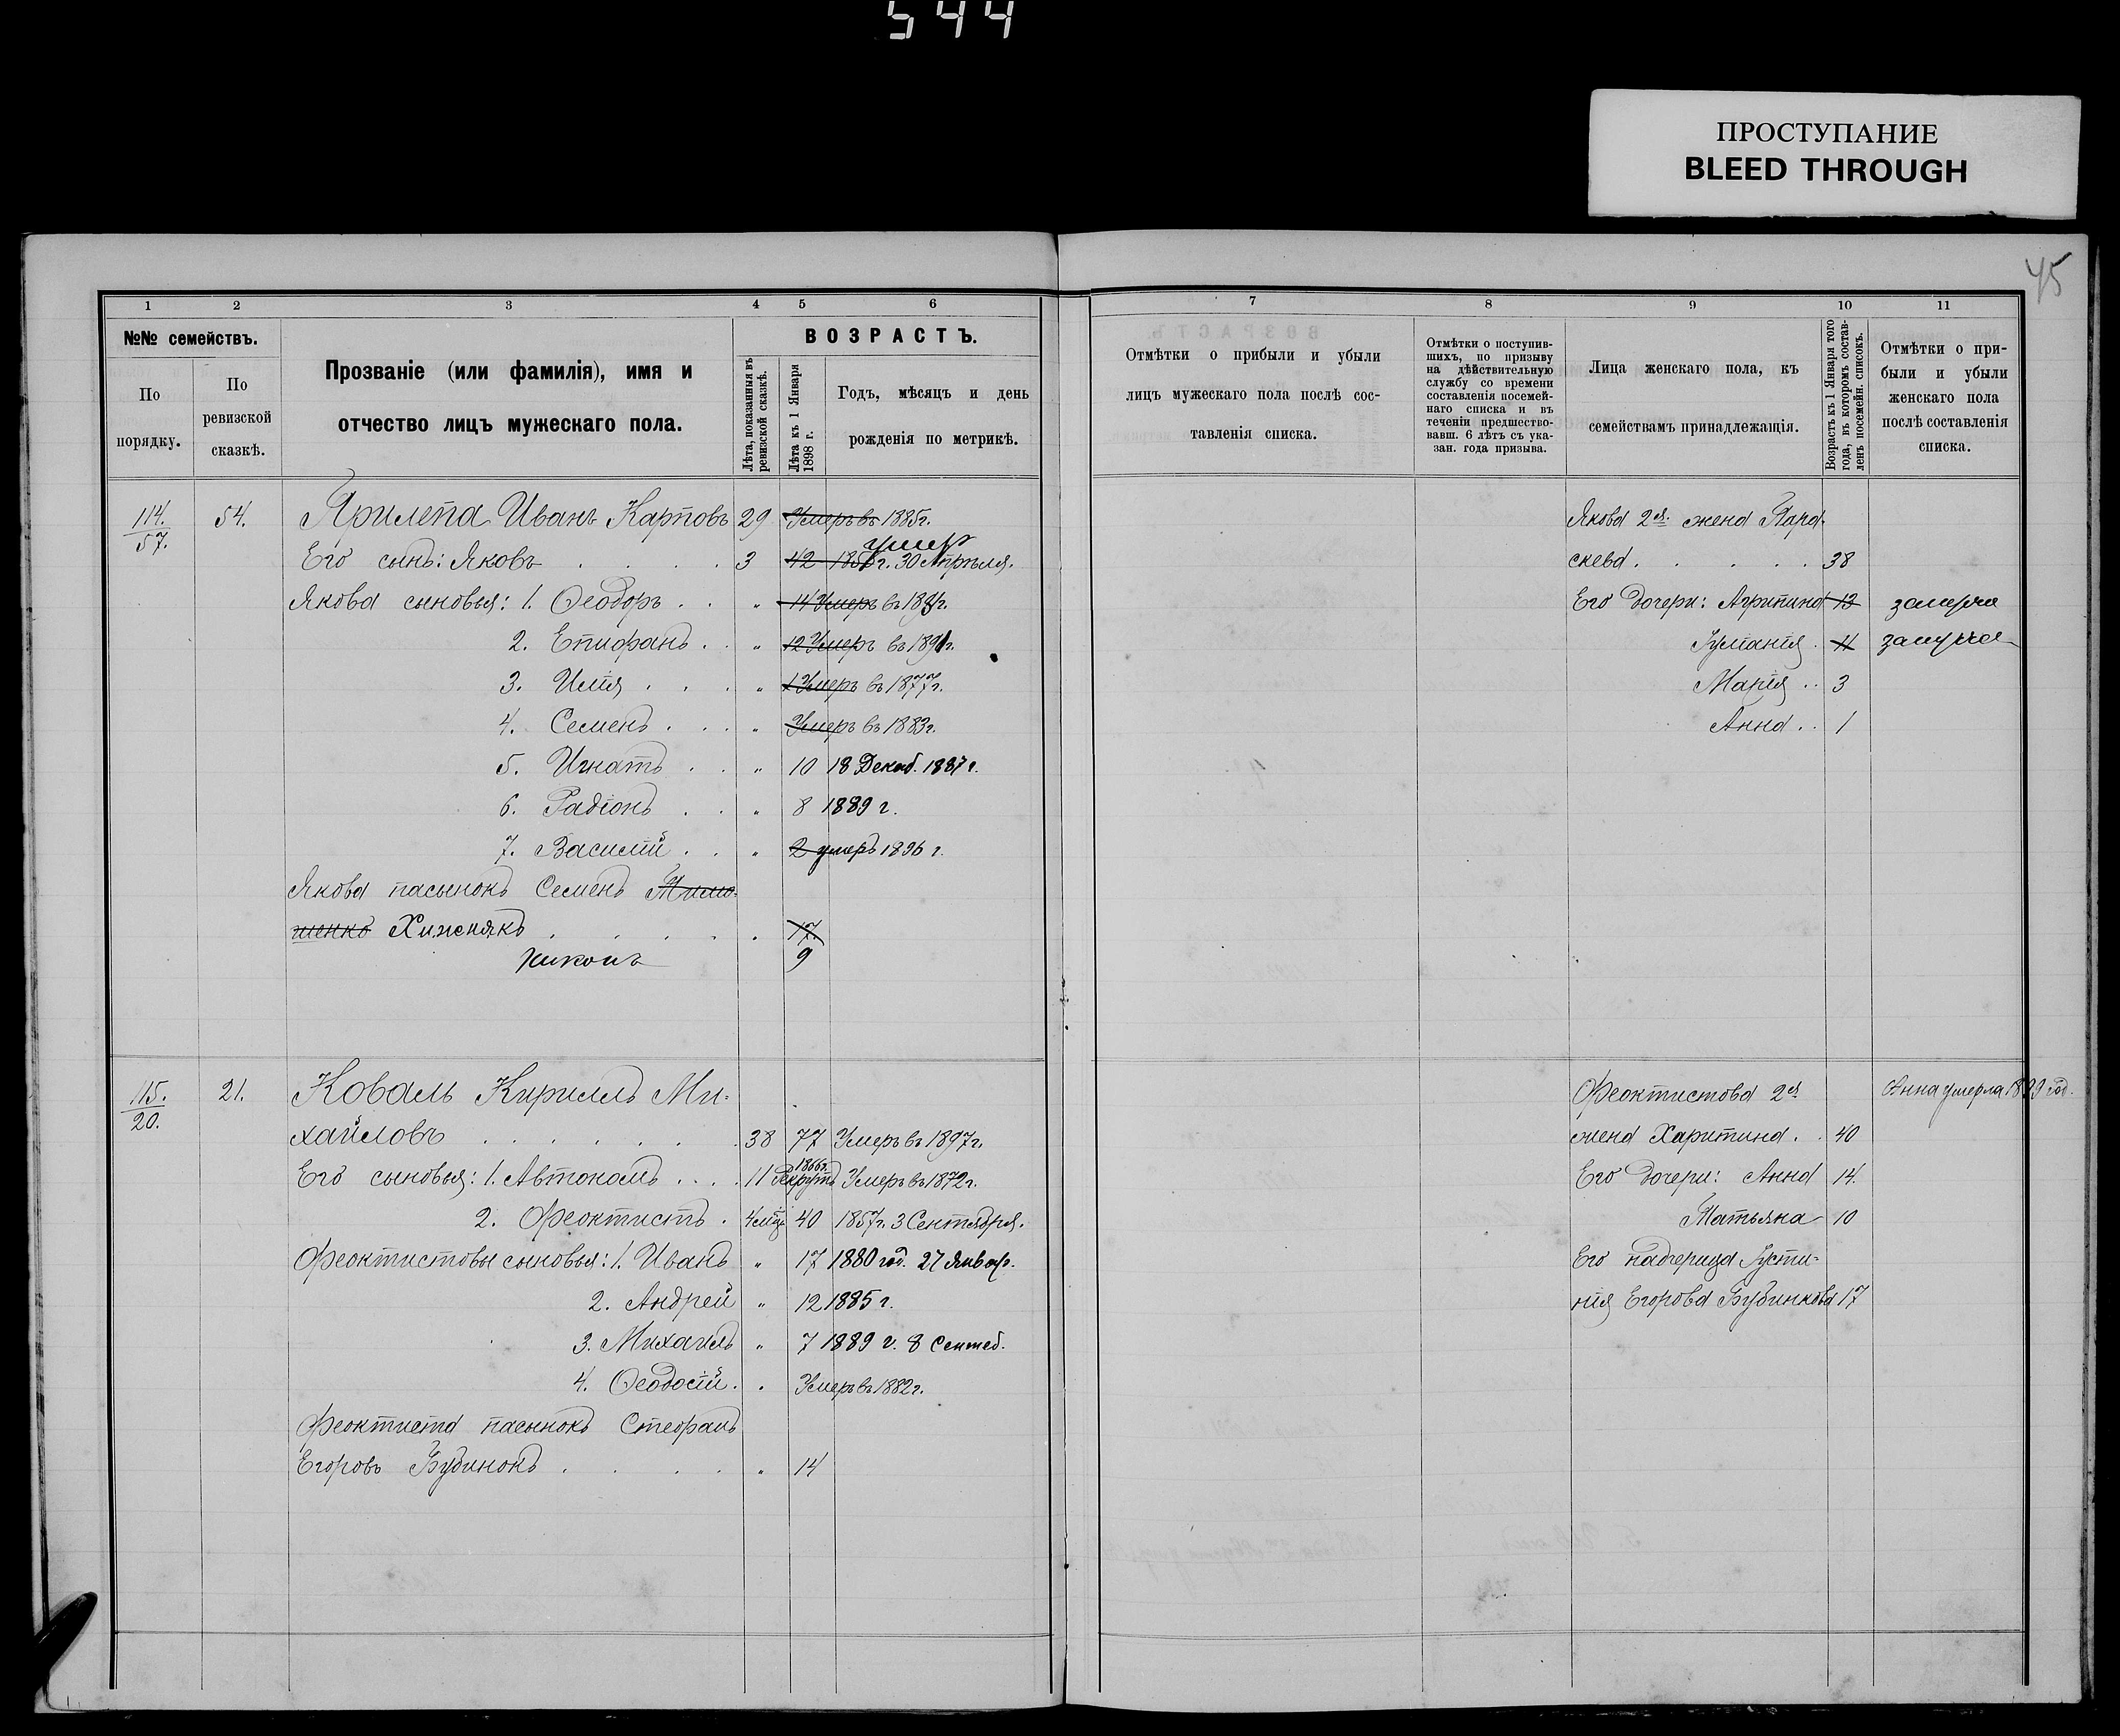 544
ПРОСТУПАНИЕ
BLEED THROUGH
45
1 2 3 4 5 6
№№ семействъ.
По порядку.
По ревизской сказкѣ.
Прозваніе (или фамилія), имя и
отчество лицъ мужескаго пола.
ВОЗРАСТЪ.
Лѣта, показанныя въ ревизской сказкѣ.
Лѣта къ 1 Января 1898 г.
Годъ, мѣсяцъ и день
рожденія по метрикѣ.
114. 54. Прилепа Иванъ Карповъ 29 Умеръ въ 1885г.
57.
умер
Его сынъ: Яковъ . . . . 3 42 1855г. 30 Апрѣля.
Якова сыновья: 1. Ѳеодоръ . . " 14 Умеръ въ 1891г.
2. Епифанъ . . " 12 Умеръ въ 1891г.
3. Илія . . . " 1 Умеръ въ 1877г.
4. Семенъ . . . " Умеръ въ 1883г.
5. Игнатъ . . " 10 18 Декаб. 1887 г.
6. Радіонъ . . " 8 1889 г.
7. Василій . . " 2 умеръ 1896 г.
Якова пасынокъ Семенъ
Хижнякъ . . . . . 17
Никонъ 9
115. 21. Коваль Кириллъ Ми-
20.
хайловъ . . . . . . 38 77 Умеръ въ 1897г.
Его сыновья: 1. Автономъ . . . 11 Рекрутъ 1866г. Умеръ въ 1872г.
2. Феоктистъ . 4 мѣс. 40 1857г. 3 Сентября.
Феоктистовы сыновья: 1. Иванъ " 17 1880 год. 27 Январ.
2. Андрей " 12 1885 г.
3. Михаилъ " 7 1889 г. 8 Сентеб.
4. Ѳеодосій . . Умеръ въ 1882г.
Феоктиста пасынокъ Стефанъ
Егоровъ Бубинокъ . . . . " 14
7 8 9 10 11
Отмѣтки о прибыли и убыли
лицъ мужескаго пола послѣ сос-
тавленія списка.
Отмѣтки о поступив-
шихъ, по призыву
на дѣйствительную
службу со времени
составленія посемей-
наго списка и въ
теченіи предшество-
вавш. 6 лѣтъ съ ука-
зан. года призыва.
Лица женскаго пола, къ
семействамъ принадлежащія.
Возрастъ къ 1 Января того
года, въ которомъ состав-
ленъ посемейн. списокъ.
Отмѣтки о при-
были и убыли
женскаго пола
послѣ составленія
списка.
Якова 2я. жена Пара-
скева . . . . . 38
Его дочери: Агрипина 13 замужe
Гуліанія . 11 замужe
Марія . . 3
Анна . . 1
Феоктистова 2я Анна умерла 1899 год.
жена Харитина . . 40
Его дочери: Анна 14.
Татьяна 10
Его падчерица Густи-
нія Егорова Бубинкова 17